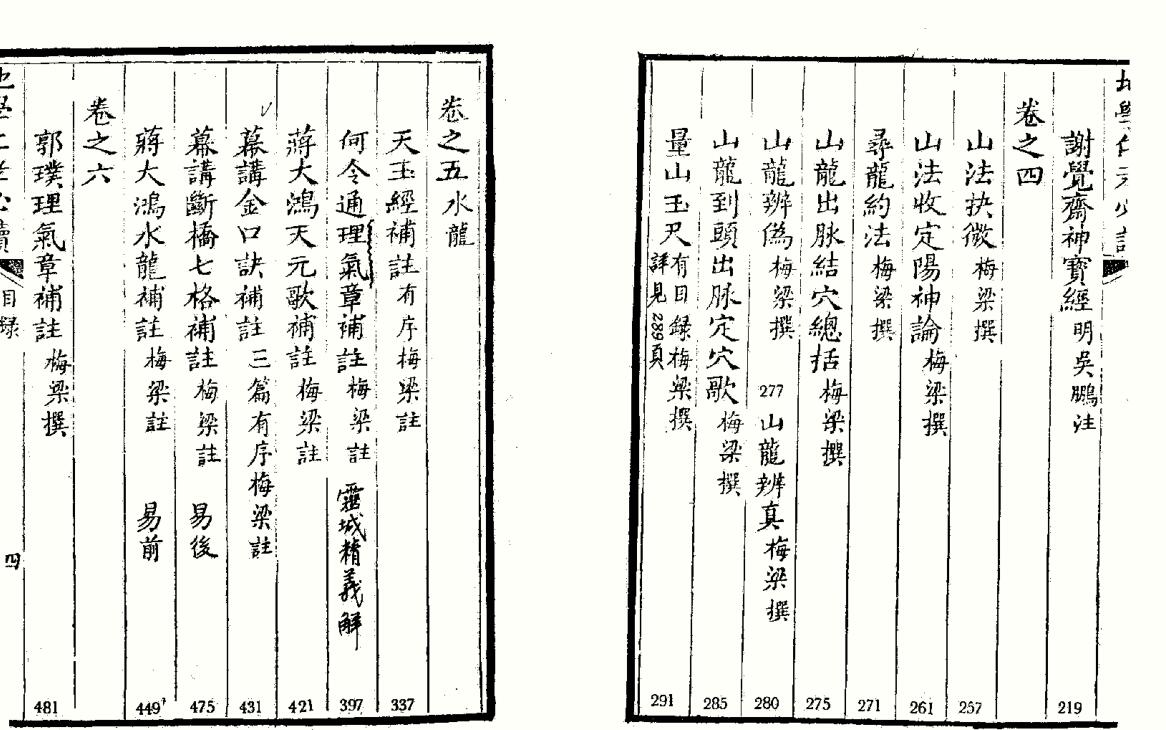 謝覺齋神寶經 明吳鵬注 219
卷之四
山法抉微 梅梁撰 257
山法收定陽神論 梅梁撰 261
尋龍約法 梅梁撰 271
山龍出脉結穴總括 梅梁撰 275
山龍辨偽 梅梁撰 277 山龍辨真 梅梁撰 280
山龍到頭出脉定穴歌 梅梁撰 285
量山玉尺 有目録梅梁撰 詳見289頁 291
卷之五水龍
天玉經補註 有序梅梁註 337
何令通理氣章補註 梅梁註 靈城精義解 397
蔣大鴻天元歌補註 梅梁註 421
幕講金口訣補註 三篇有序梅梁註 431
幕講斷橋七格補註 梅梁註 易後 475
蔣大鴻水龍補註 梅梁註 易前 449
卷之六
郭璞理氣章補註 梅梁撰 481
目録
四